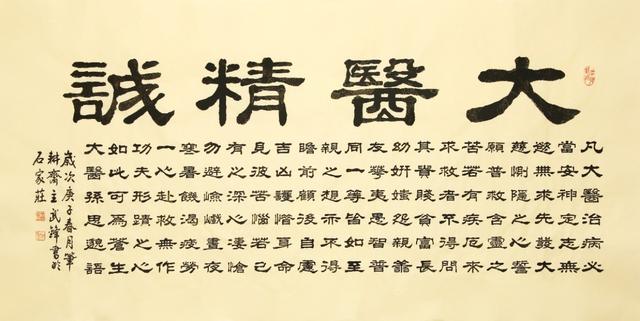 大醫精誠
凡大醫治病必
當安神定志無
慾無求先發大
慈惻隱之心誓
願普救含靈之
苦若有疾厄來
求救者不得問
其貴賤貧富長
幼妍媸怨親善
友華夷愚智普
同一等皆如至
親之想亦不得
瞻前顧後自慮
吉凶護惜身命
見彼苦惱若己
有之深心凄愴
勿避嶮巇晝夜
寒暑饑渴疲勞
一心赴救無作
功夫形跡之心
如此可爲蒼生
大醫孫思邈語
歲次庚子春月筆
耕齋主武緯書於
石家莊